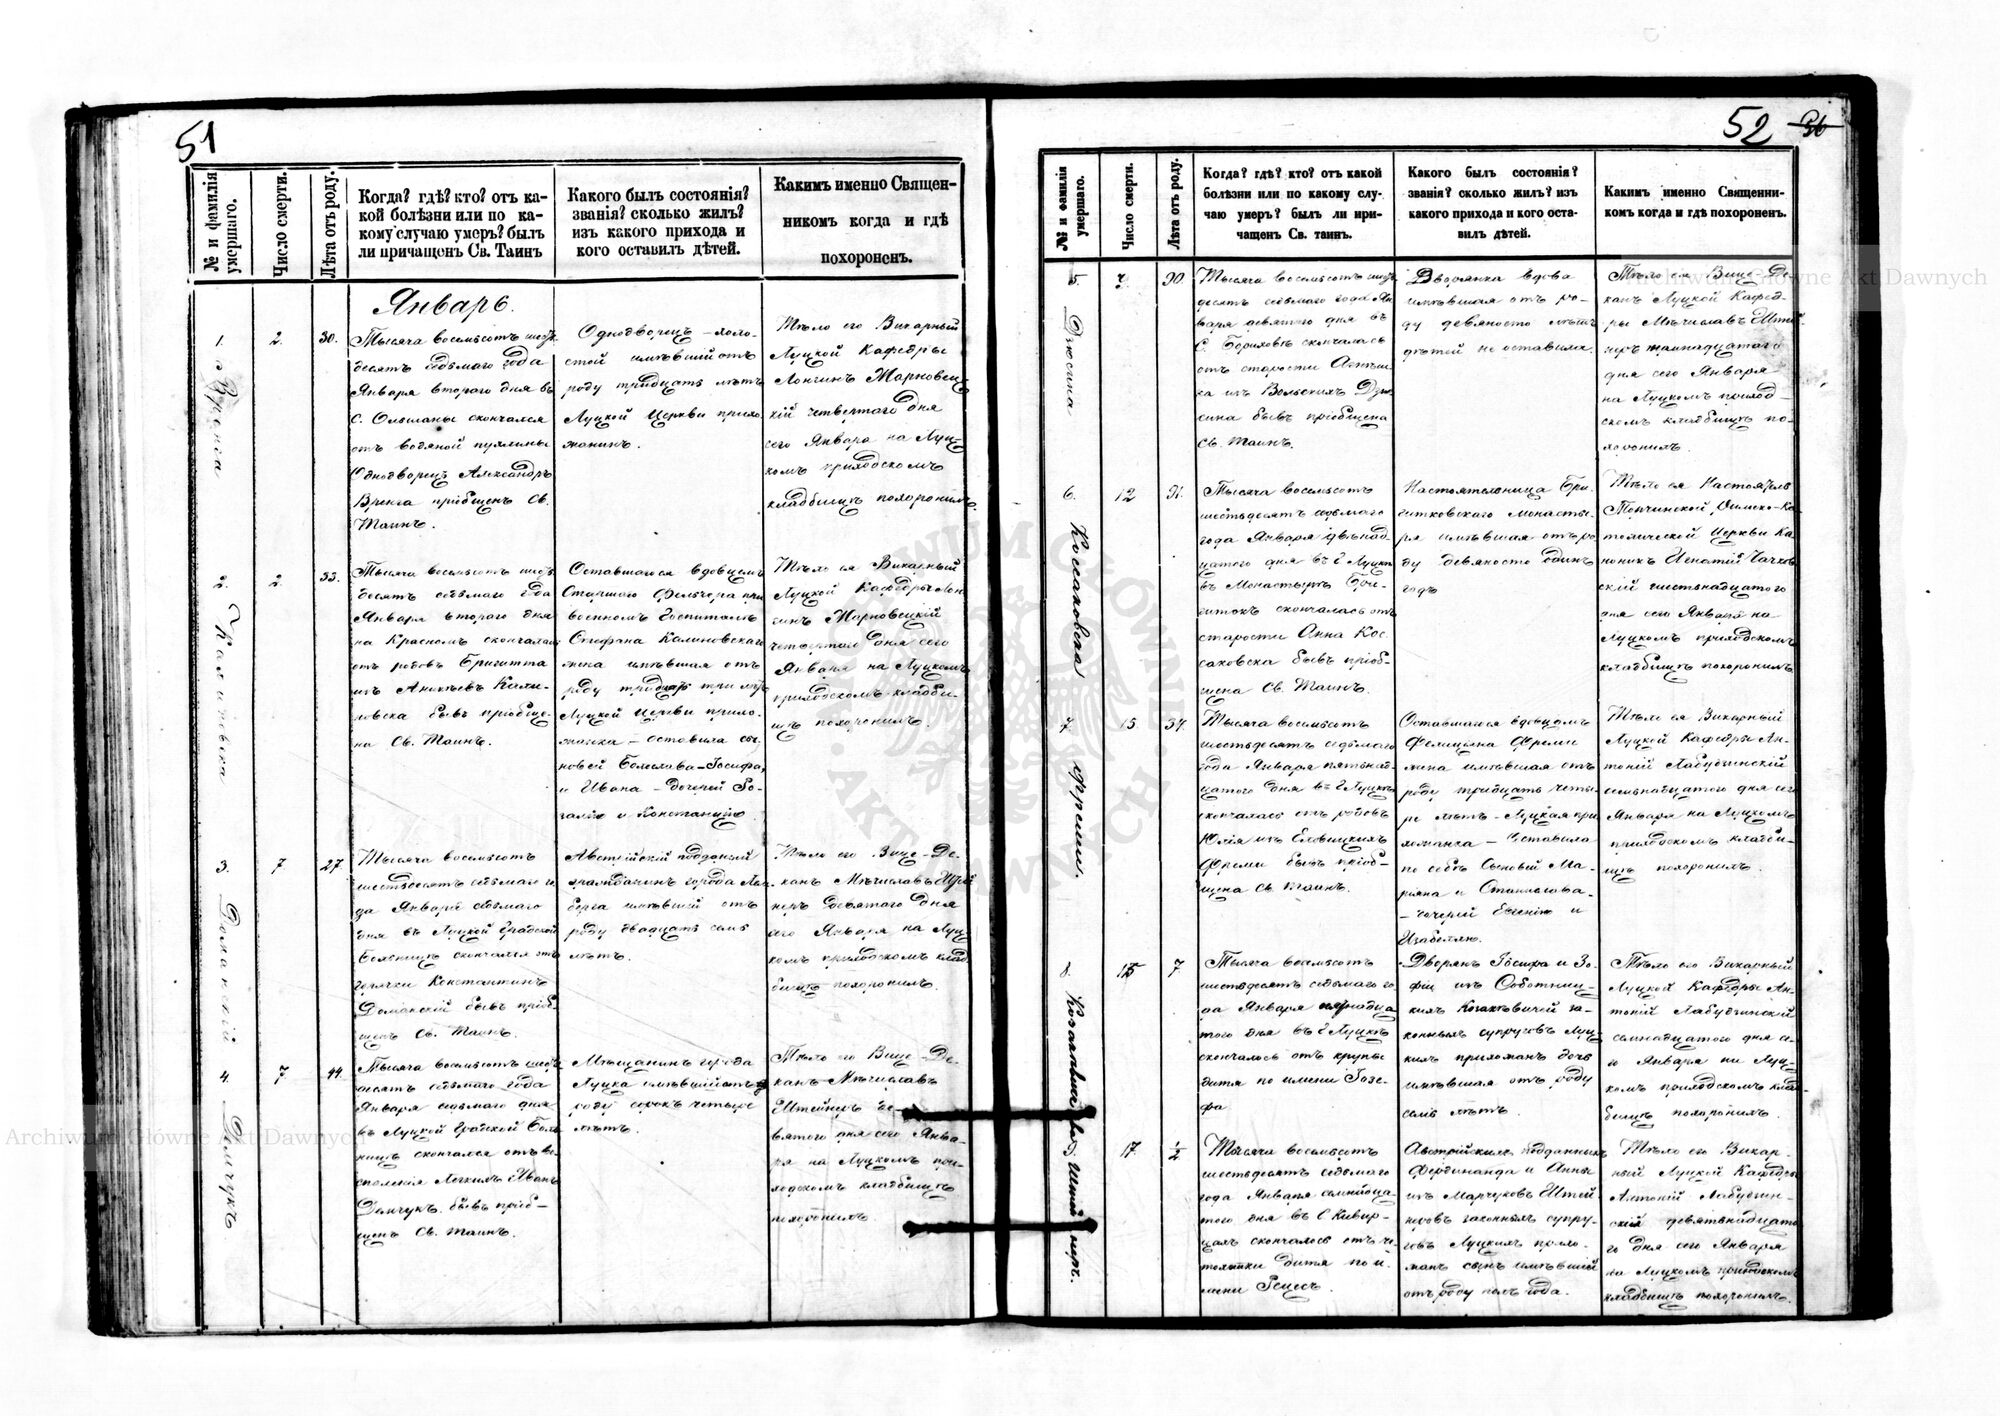 51
№ и фамилія умершаго.
Число смерти.
Лѣта отъ роду.
Когда? гдѣ? кто? отъ ка-
кой болѣзни или по ка-
кому случаю умеръ? былъ
ли причащенъ Св. Таинъ
Какого былъ состоянія?
званія? сколько жилъ?
изъ какого прихода и
кого оставилъ дѣтей.
Какимъ именно Священ-
никомъ когда и гдѣ
похороненъ.
Январь.
1.
2.
30.
Тысяча восемьсотъ шесть
десятъ седьмаго года
Января втораго дня въ
с. скончался
отъ водяной
Однодворецъ Александръ
Вринга пріобщенъ Св.
Таинъ.
Однодворецъ – холо-
стой имѣвшій отъ
роду тридцать лѣтъ
Луцкой Церкви прихо-
жанинъ.
Тѣло его Викарный
Луцкой Кафедры
Лонгинъ Жарновец-
кій четвертаго дня
сего Января на Луц-
комъ приходскомъ
кладбищѣ похоронилъ.
2.
Калиновска
2.
33.
Тысяча восемьсотъ шесть
десятъ седьмаго года
Января втораго дня
на Красномъ скончалась
отъ родовъ Бригитта
изъ Кали-
новска бывъ пріобще-
на Св. Таинъ.
Оставшагося вдовцемъ
Старшаго Фельдшера при
военномъ Госпиталѣ
Стефана Калиновскаго
жена имѣвшая отъ
роду тридцать три лѣтъ
Луцкой Церкви прихо-
жанка – оставила сы-
новей Болеслава – Іосифа,
и Ивана – дочерей Ро-
залію и Констанцію.
Тѣло ея Викарный
Луцкой Кафедры Лон
гинъ Жарновецкій
четвертаго дня сего
Января на Луцкомъ
приходскомъ кладби-
щѣ похоронилъ.
3.
Доманскій
7
27.
Тысяча восемьсотъ
шестьдесятъ седьмаго го
да Января седьмаго
дня въ Луцкой Градской
Больницѣ скончался отъ
горячки Константинъ
Доманскій бывъ пріоб
щенъ Св. Таинъ.
Австрійскій подданный
гражданинъ города Лем
берга имѣвшій отъ
роду двадцать семь
лѣтъ.
Тѣло его Вице-Де-
канъ Мѣчиславъ Штей
неръ девятаго дня
сего Января на Луц
комъ приходскомъ клад
бищѣ похоронилъ.
4.
Демчукъ
7
44.
Тысяча восемьсотъ шесть
десятъ седьмаго года
Января седьмаго дня
въ Луцкой Градской Боль
ницѣ скончался отъ во
спаленія Легкихъ Иванъ
Демчукъ бывъ пріоб-
щенъ Св. Таинъ.
Мѣщанинъ города
Луцка имѣвшій отъ
роду сорокъ четыре
лѣтъ.
Тѣло его Вице-Де-
канъ Мѣчиславъ
Штейнеръ де-
вятаго дня сего Янва-
ря на Луцкомъ при-
ходскомъ кладбищѣ
похоронилъ.
52 36
№ и фамилія умершаго.
Число смерти.
Лѣта отъ роду.
Когда? гдѣ? кто? отъ какой
болѣзни или по какому слу-
чаю умеръ? былъ ли при-
чащенъ Св. таинъ.
Какого былъ состоянія?
званія? сколько жилъ? изъ
какого прихода и кого оста-
вилъ дѣтей.
Какимъ именно Священни-
комъ когда и гдѣ похороненъ.
5.
90.
Тысяча восемьсотъ шесть
десятъ седьмаго года Ян
варя девятаго дня въ
с. скончалась
отъ старости
изъ Вольскихъ
сина бывъ пріобщена
Св. Таинъ.
Дворянка вдова
имѣвшая отъ ро-
ду девяносто лѣтъ
дѣтей не оставила.
Тѣло ея Вице-Де-
канъ Луцкой Кафед-
ры Мѣчиславъ Штей-
неръ
дня сего Января
на Луцкомъ приход-
скомъ кладбищѣ по-
хоронилъ.
6.
Коссаковска
12
91.
Тысяча восемьсотъ
шестьдесятъ седьмаго
года Января двѣнад-
цатаго дня въ г. Луцкѣ
въ Монастырѣ Бри-
гитокъ скончалась отъ
старости Анна Кос-
саковска бывъ пріоб-
щена Св. Таинъ.
Настоятельница Бри-
гитковскаго Монасты-
ря имѣвшая отъ ро
ду девяносто одинъ
годъ
Тѣло ея Настоятель
Торчинской Римско-Ка
толической Церкви Ка
ноникъ Игнатій
скій шестнадцатаго
дня сего Января на
Луцкомъ приходскомъ
кладбищѣ похоронилъ
7.
Фреми.
15
34.
Тысяча восемьсотъ
шестьдесятъ седьмаго
года Января пятьнад-
цатаго дня въ г. Луцкѣ
скончалась отъ родовъ
Юлія изъ Еловицкихъ
Фреми бывъ пріоб-
щена Св. Таинъ.
Оставшагося вдовцомъ
Фелиціана Фреми
жена имѣвшая отъ
роду тридцать четы
ре лѣтъ – Луцкая при
хожанка – Оставила
по себѣ Сыновей Ма-
ріяна и Станислава
– дочерей Евгенію и
Изабеллю.
Тѣло ея Викарный
Луцкой Кафедры Ан-
тоній Лабудзинскій
семьнадцатаго дня сего
Января на Луцкомъ
приходскомъ кладби-
щѣ похоронилъ.
8.
15
7
Тысяча восемьсотъ
шестьдесятъ седьмаго го
да Января пятнадца
таго дня въ г. Луцкѣ
скончалось отъ крупы
дитя по имени Іозе-
фа
Дворянъ Іосифа и Зо-
фіи изъ Соботниц-
кихъ Козакевичей за-
конныхъ супруговъ Луц
кихъ прихожанъ дочь
имѣвшая отъ роду
семь лѣтъ.
Тѣло его Викарный
Луцкой Кафедры Ан-
тоній Лабудзинскій
семнадцатаго дня се-
го Января на Луц-
комъ приходскомъ клад
бищѣ похоронилъ.
Штейнеръ.
17
1/2
Тысяча восемьсотъ
шестьдесятъ седьмаго
года Января семнадца
таго дня въ С. Кивер-
цахъ скончалось отъ че-
дитя по и-
мени
Австрійскихъ подданныхъ
Фердинанда и Анны
изъ Марчуковъ Штей
неровъ законныхъ супру-
говъ Луцкихъ прихо-
жанъ сынъ имѣвшій
отъ роду полъ года.
Тѣло его Викар-
ный Луцкой Кафедры
Антоній Лабудзин-
скій девятьнадцата
го дня сего Января
на Луцкомъ приходскомъ
кладбищѣ похоронилъ.
Archiwum Główne Akt Dawnych
Archiwum Główne Akt Dawnych
ARCHIWUM GŁÓWNE AKT DAWNYCH